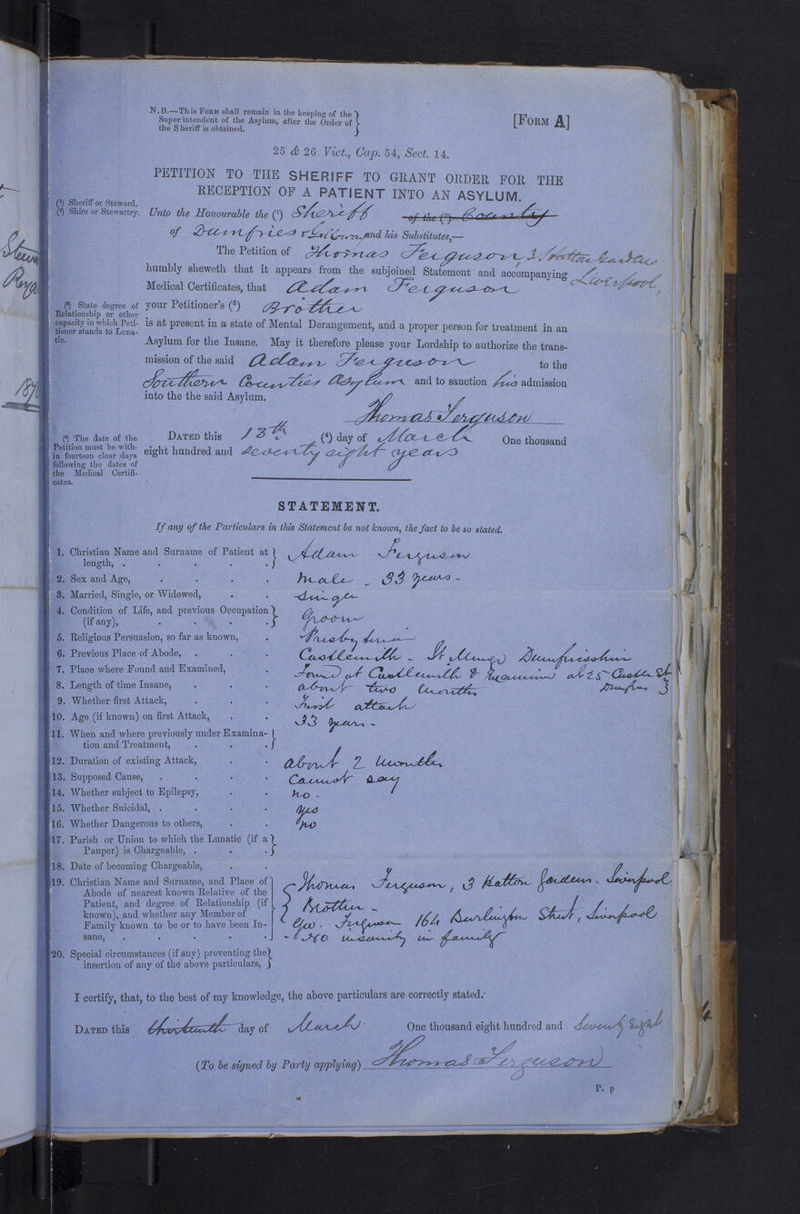 N.B.—This Form shall remain in the keeping of the
Superintendent of the Asylum, after the Order of
the Sheriff is obtained.
[Form A]
25 & 26 Vict., Cap. 54, Sect. 14.
PETITION TO THE SHERIFF TO GRANT ORDER FOR THE
RECEPTION OF A PATIENT INTO AN ASYLUM.
(1) Sheriff or Steward.
(2) Shire or Stewartry.
Unto the Honourable the (1) Sheriff of the (2) County
of Dumfries & Galloway and his Substitutes,—
The Petition of Thomas Ferguson, 3 Hatton Gardens
Liverpool,
humbly sheweth that it appears from the subjoined Statement and accompanying
Medical Certificates, that Adam Ferguson
(3) State degree of
Relationship or other
capacity in which Peti-
tioner stands to Luna-
tic.
your Petitioner's (3) Brother
is at present in a state of Mental Derangement, and a proper person for treatment in an
Asylum for the Insane. May it therefore please your Lordship to authorize the trans-
mission of the said Adam Ferguson to the
Southern Counties Asylum and to sanction his admission
into the the said Asylum.
Thomas Ferguson
(4) The date of the
Petition must be with-
in fourteen clear days
following the dates of
the Medical Certifi-
cates.
Dated this 13th (4) day of March One thousand
eight hundred and seventy eight years
STATEMENT.
If any of the Particulars in this Statement be not known, the fact to be so stated.
1. Christian Name and Surname of Patient at
length, . Adam Ferguson
2. Sex and Age, Male - 33 years -
3. Married, Single, or Widowed, Single
4. Condition of Life, and previous Occupation
(if any), Groom
5. Religious Persuasion, so far as known, Presbyterian
6. Previous Place of Abode, Castlemilk - St Mungo Dumfriesshire
7. Place where Found and Examined, Found at Castlemilk & Examined at 25 Castle St
Dumfries
8. Length of time Insane, about two months
9. Whether first Attack, First attack
10. Age (if known) on first Attack, 33 years -
11. When and where previously under Examina-
tion and Treatment,
12. Duration of existing Attack, about 2 months
13. Supposed Cause, Cannot say
14. Whether subject to Epilepsy, no -
15. Whether Suicidal, yes
16. Whether Dangerous to others, no
17. Parish or Union to which the Lunatic (if a
Pauper) is Chargeable,
18. Date of becoming Chargeable,
19. Christian Name and Surname, and Place of
Abode of nearest known Relative of the
Patient, and degree of Relationship (if
known), and whether any Member of
Family known to be or to have been In-
sane,
Thomas Ferguson, 3 Hatton Gardens - Liverpool
Brother -
Geo. Ferguson 164 Burlington Street, Liverpool
- No insanity in family
20. Special circumstances (if any) preventing the
insertion of any of the above particulars,
I certify, that, to the best of my knowledge, the above particulars are correctly stated.
Dated this thirteenth day of March One thousand eight hundred and Seventy Eight
(To be signed by Party applying) Thomas Ferguson
P. p